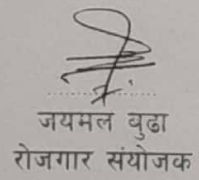 जयमल बुढा
रोजगार संयोजक